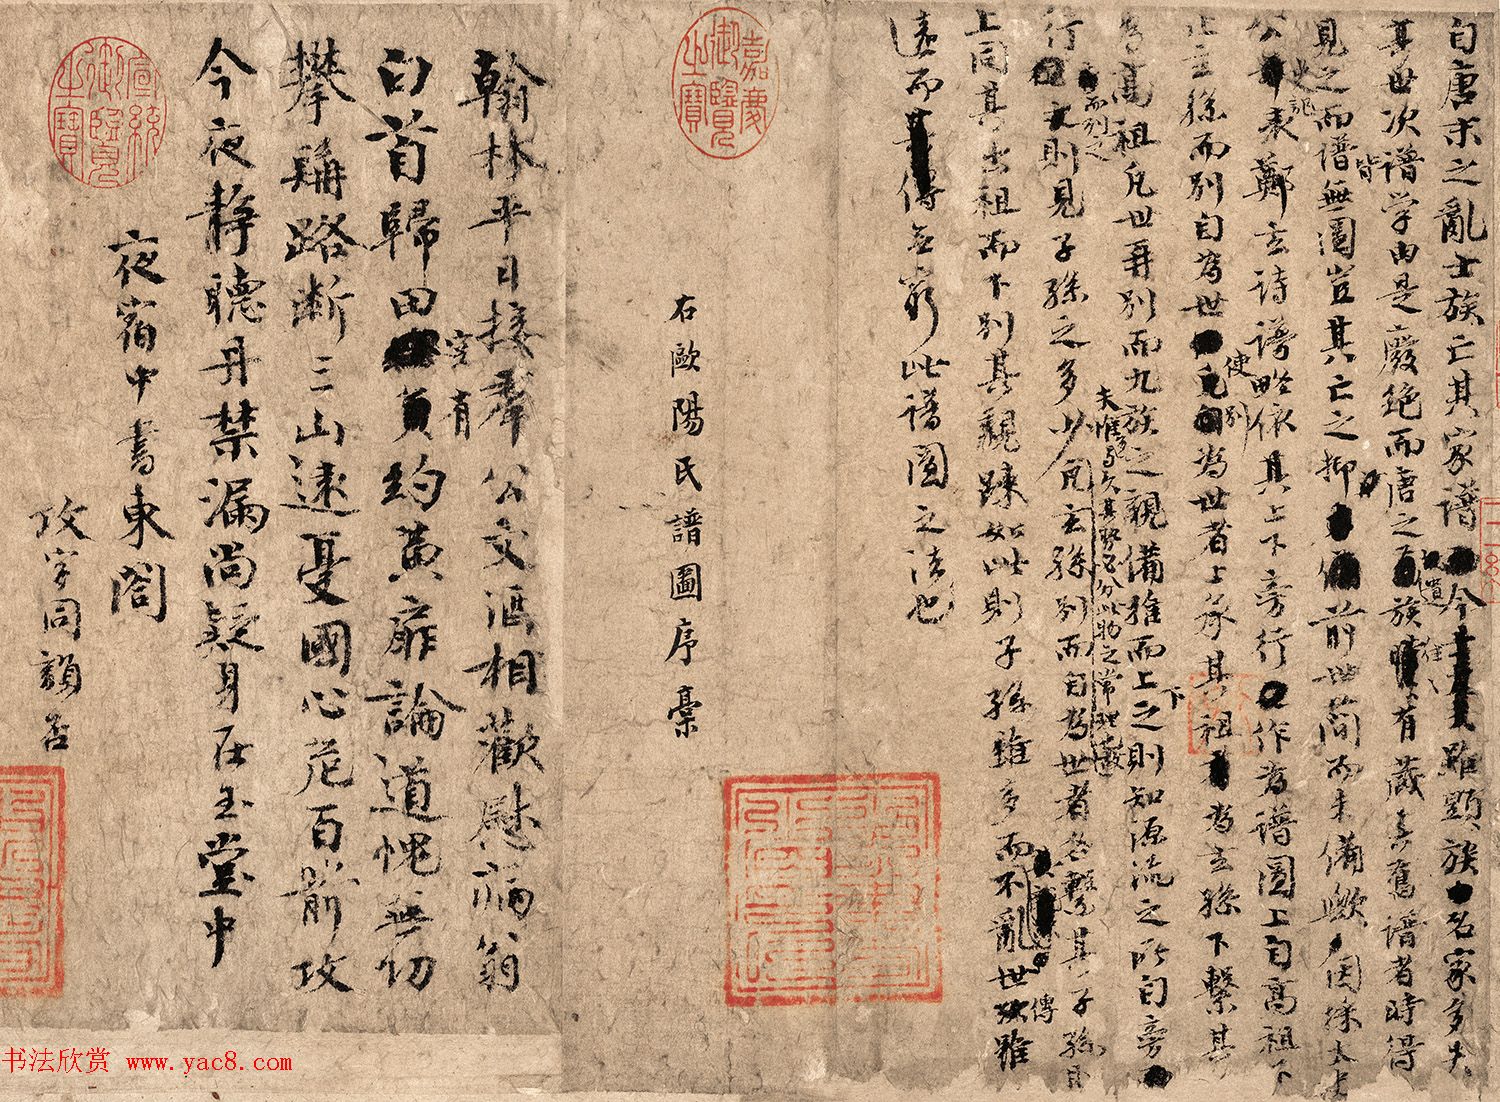 自唐末之亂士族亡其家譜今雖顯族名家多失
其世次譜学由是廢绝而唐之遺族往往有藏其舊譜者時得
見之而譜皆無圖豈其亡之抑前世簡而未備歟因採太史
公史記表鄭玄詩譜略依其上下旁行作為譜圖上自高祖下
止玄孫而別自為世使別為世者上承其祖為玄孫下繫其
為高祖凡世再別而九族之親備推而上下之則知源流之所自旁
行而列之則見子孫之多少夫惟多與久其勢必分此物之常理也凡玄孫別而自為世者各繫其子孫自
上同其出祖而下別其親踈如此則子孫雖多而不亂世傳雖
遠而無窮此譜圖之法也
嘉慶御覽之寶
右歐陽氏譜圖序稾
翰林平日接羣公文酒相歡慰病翁
白首歸田空有約黄扉論道愧無功
攀髯路断三山遠憂國心危百箭攻
今夜靜聽丹禁漏尚疑身在玉堂中
夜宿中書東閣
攻字同韻否
宣統御覽之寶
书法欣赏 www.yac8.com